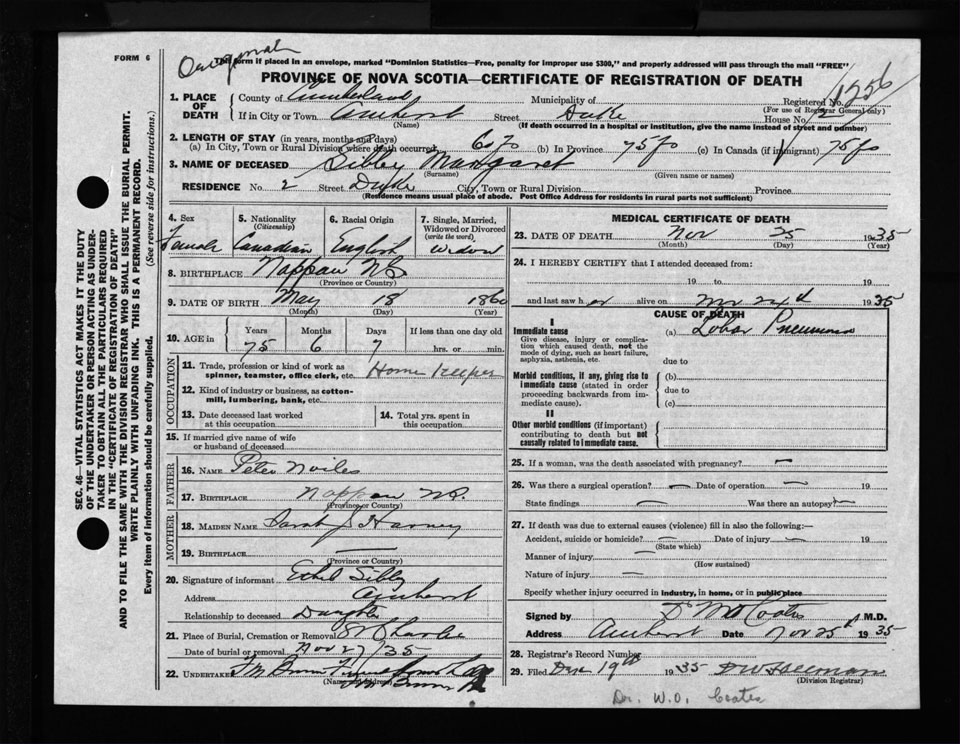 FORM 6
This form if placed in an envelope, marked "Dominion Statistics—Free, penalty for improper use $300," and properly addressed will pass through the mail "FREE"
PROVINCE OF NOVA SCOTIA—CERTIFICATE OF REGISTRATION OF DEATH
1256
1. PLACE OF DEATH
County of Cumberland Municipality of Registered No.
(For use of Registrar General only)
If in City or Town Amherst Street Duke House No. 2
(Name) (If death occurred in a hospital or institution, give the name instead of street and number)
2. LENGTH OF STAY (in years, months and days)
(a) In City, Town or Rural Division where death occurred (b) In Province 75 (c) In Canada (if immigrant) 75
3. NAME OF DECEASED Sibley Margaret
(Surname) (Given name or names)
RESIDENCE No. 2 Street Duke City, Town or Rural Division Province
(Residence means usual place of abode. Post Office Address for residents in rural parts not sufficient)
4. Sex
Female
5. Nationality
(Citizenship)
Canadian
6. Racial Origin
English
7. Single, Married, Widowed or Divorced
(write the word)
Widow
8. BIRTHPLACE Nappan NS
(Province or Country)
9. DATE OF BIRTH May 18 1860
(Month) (Day) (Year)
10. AGE in
Years Months Days If less than one day old
75 6 7 hrs. or min.
OCCUPATION
11. Trade, profession or kind of work as spinner, teamster, office clerk, etc. Home Keeper
12. Kind of industry or business, as cotton-mill, lumbering, bank, etc.
13. Date deceased last worked at this occupation
14. Total yrs. spent in this occupation
15. If married give name of wife or husband of deceased
FATHER
16. NAME Peter Noiles
17. BIRTHPLACE Nappan NS.
(Province or Country)
MOTHER
18. MAIDEN NAME Sarah J Harney
19. BIRTHPLACE —
(Province or Country)
20. Signature of informant Ethel Sibley
Address Amherst
Relationship to deceased Daughter
21. Place of Burial, Cremation or Removal
Date of burial or removal Nov 27/35
22. UNDERTAKER
(Name and Address)
MEDICAL CERTIFICATE OF DEATH
23. DATE OF DEATH Nov 25 1935
(Month) (Day) (Year)
24. I HEREBY CERTIFY that I attended deceased from:
19 to 19
and last saw her alive on Nov 24th 1935
CAUSE OF DEATH
I
Immediate cause (a) Lobar Pneumonia
Give disease, injury or complication which caused death, not the mode of dying, such as heart failure, asphyxia, asthenia, etc.
due to
Morbid conditions, if any, giving rise to immediate cause (stated in order proceeding backwards from immediate cause).
(b)
due to
(c)
II
Other morbid conditions (if important) contributing to death but not causally related to immediate cause.
25. If a woman, was the death associated with pregnancy? —
26. Was there a surgical operation? — Date of operation — 19
State findings — Was there an autopsy? —
27. If death was due to external causes (violence) fill in also the following:—
Accident, suicide or homicide? — Date of injury — 19
(State which)
Manner of injury —
(How sustained)
Nature of injury —
Specify whether injury occurred in industry, in home, or in public place
Signed by Coates M.D.
Address Amherst Date Nov 25th 1935
28. Registrar's Record Number
29. Filed Dec 19th 1935
(Division Registrar)
Dr. W.O. Coates
SEC. 46—VITAL STATISTICS ACT MAKES IT THE DUTY
OF THE UNDERTAKER OR PERSON ACTING AS UNDER-
TAKER TO OBTAIN ALL THE PARTICULARS REQUIRED
IN THE "CERTIFICATE OF REGISTRATION OF DEATH"
AND TO FILE THE SAME WITH THE DIVISION REGISTRAR WHO SHALL ISSUE THE BURIAL PERMIT.
WRITE PLAINLY WITH UNFADING INK. THIS IS A PERMANENT RECORD.
Every item of information should be carefully supplied. (See reverse side for instructions.)